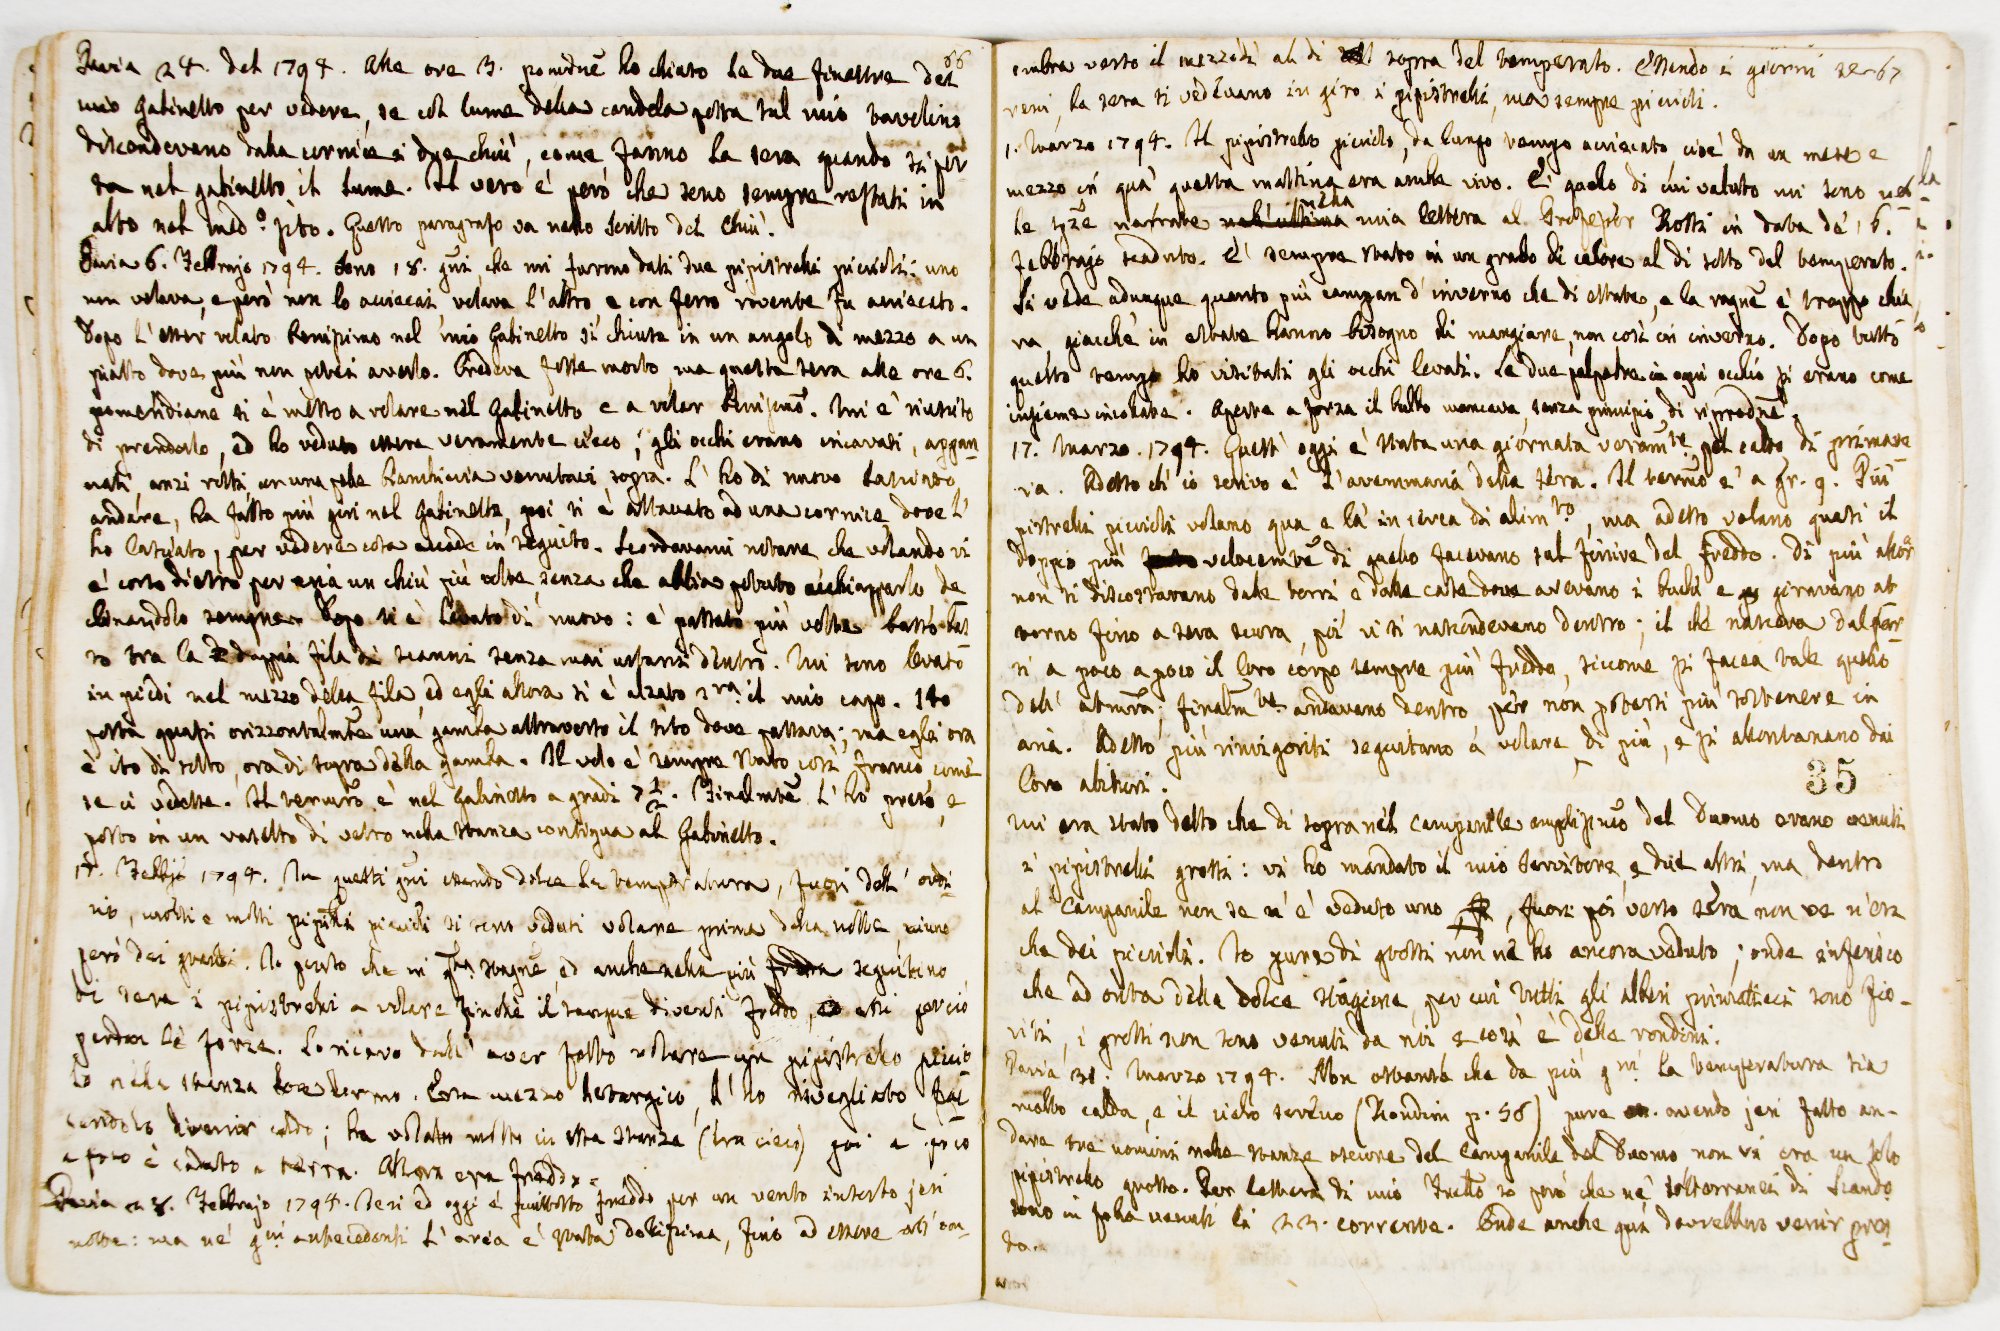 66
Pavia 24. del 1794. Alle ore 3. pomerdne ho chiuso le due finestre del
mio Gabinetto per vedere, se col lume della candela posta sul mio tavolino
discendevano dalla cornice i due chiù, come fanno la sera quando si por
ta nel gabinetto il lume. Il vero è però che sono sempre restati in
alto nel med.o sito. Questo paragrafo va nello scritto del Chiù.
Pavia 6. Febbrajo 1794. Sono 18. gni che mi furono dati due pipistrelli piccioli: uno
non volava, e però non lo acciecai, volava l'altro, e con ferro rovente fu acciecato.
Dopo l'esser volato benissimo nel mio Gabinetto si chiuse in un angolo di mezzo a un
piatto dove più non potei averlo. Credeva fosse morto, ma questa sera alle ore 6.
pomeridiane si è messo a volare nel Gabinetto e a volar benissmo. Mi è riuscito
di prenderlo, ed ho veduto essere veramente cieco; gli occhi erano incavati, appan
nati, anzi rotti, con una pelle bianchiccia venutavi sopra. L'ho di nuovo lasciato
andare, ha fatto più giri nel Gabinetto, poi si è attaccato ad una cornice, dove l'
ho lasciato, per vedere cosa accade in seguito. Scordavami notare che volando vi
è corso dietro per aria un chiù più volte, senza che abbia potuto acchiapparlo de
clinandolo sempre. Dopo si è levato di nuovo: è passato più volte basso bas
so tra la doppia fila di scanni senza mai urtarvi dentro. Mi sono levato
in piedi nel mezzo della fila, ed egli allora si è alzato sra il mio capo. Ho
posta quasi orizzontalmte una gamba attraverso il sito dove passava; ma egli ora
è ito di sotto, ora di sopra della gamba. Il volo è sempre stato così franco come
se ci vedesse. Il termro è nel Gabinetto a gradi 7 1/2. Finalmte l'ho preso, e
posto in un vasello di vetro nella stanza contigua al Gabinetto.
17. Febbjo 1794. In questi gni essendo dolce la temperatura, fuori dell'ordi
rio, molti e molti pipistlli piccioli si sono veduti volare prima della notte, niuno
però dei grandi. Io penso che in qta stagne, ed anche nella più fredda seguitino
di sera i pipistrelli a volare finchè il sangue diventi freddo, ed essi perciò
perdan le forze. Lo ricavo dall'aver fatto volare un pipistrello picio
lo nella stanza dove dormo. Era mezzo letargico, l'ho risvegliato fac
cendolo divenir caldo; ha volato molto in essa stanza (era cieco) poi a poco
a poco è caduto a terra. Allora era freddo.
Pavia 28. Febbrajo 1794. Ieri ed oggi è piuttosto freddo per un vento insorto jeri
notte: ma ne' gni antecedenti l'aria è stata dolcissima, fino ad essere all'om-
67
embra verso il mezzodì al di sopra del temperato. Essendo i giorni se-
reni, la sera si vedevano in giro i pipistrelli, ma sempre piccioli.
1. Marzo 1794. Il pipistrello picciolo, da lungo tempo acciecato, cioè da un mese e
mezzo in quà questa mattina era anche vivo. È quello di cui valuto mi sono nel
le spze narrate nell'ultima nella mia lettera al Professor Rossi in data de' 16.
Febbrajo scaduto. È sempre stato in un grado di calore al di sotto del temperato.
Si vede adunque quanto più campan d'inverno che di estate, e la ragne è troppo chia
ra, giacchè in estate hanno bisogno di mangiare, non così in inverno. Dopo tutto
questo tempo ho visitati gli occhi levati. Le due palpebre in ogni occhio si erano come
insieme incollate. Aperte a forza il bulbo mancava, senza principio di riprodne.
17. Marzo. 1794. Quest'oggi è stata una giornata veramte pel caldo di primave
ra. Adesso ch'io scrivo è l'avemmaria della sera. Il termro è a gr. 9. Più
pistrelli piccioli volano qua e là in cerca di alimto, ma adesso volano quasi il
doppio più velocemte di quello facevano sul finire del freddo. Di più allor
non si discostavano dalle torri e dalle case dove avevano i buchi e giravano at
torno fino a sera scura, poi vi si nascondevano dentro; il che nasceva dal far
si a poco a poco il loro corpo sempre più freddo, siccome si facea tale quello
dell'atmsra; finalmte andavano dentro per non potersi più sostenere in
aria. Adesso più rinvigoriti seguitano a volare di più, e si allontanano dai
loro abituri.
35
Mi era stato detto che di sopra nel campanile amplissmo del Duomo erano venuti
i pipistrelli grossi: vi ho mandato il mio servitore, e due altri, ma dentro
al campanile non se n'è veduto uno, fuori poi verso sera non ve n'era
che dei piccioli. Io pure di grossi non ne ho ancora veduto; onde inferisco
che ad onta della dolce stagione, per cui tutti gli alberi primaticci sono fio-
riti, i grossi non sono venuti da noi e così è delle rondini.
Pavia 31. Marzo 1794. Non ostante che da più gni la temperatura sia
molto calda, e il cielo sereno (Rondini p. 58) pure avendo jeri fatto an-
dare tre uomini nelle stanze oscure del Campanile del Duomo non vi era un solo
pipistrello grosso. Per lettera di mio Fratello so però che ne' sotterranei di Scando
sono in folla venuti li 22. corrente. Onde anche quà dovrebbero venir pres
to.